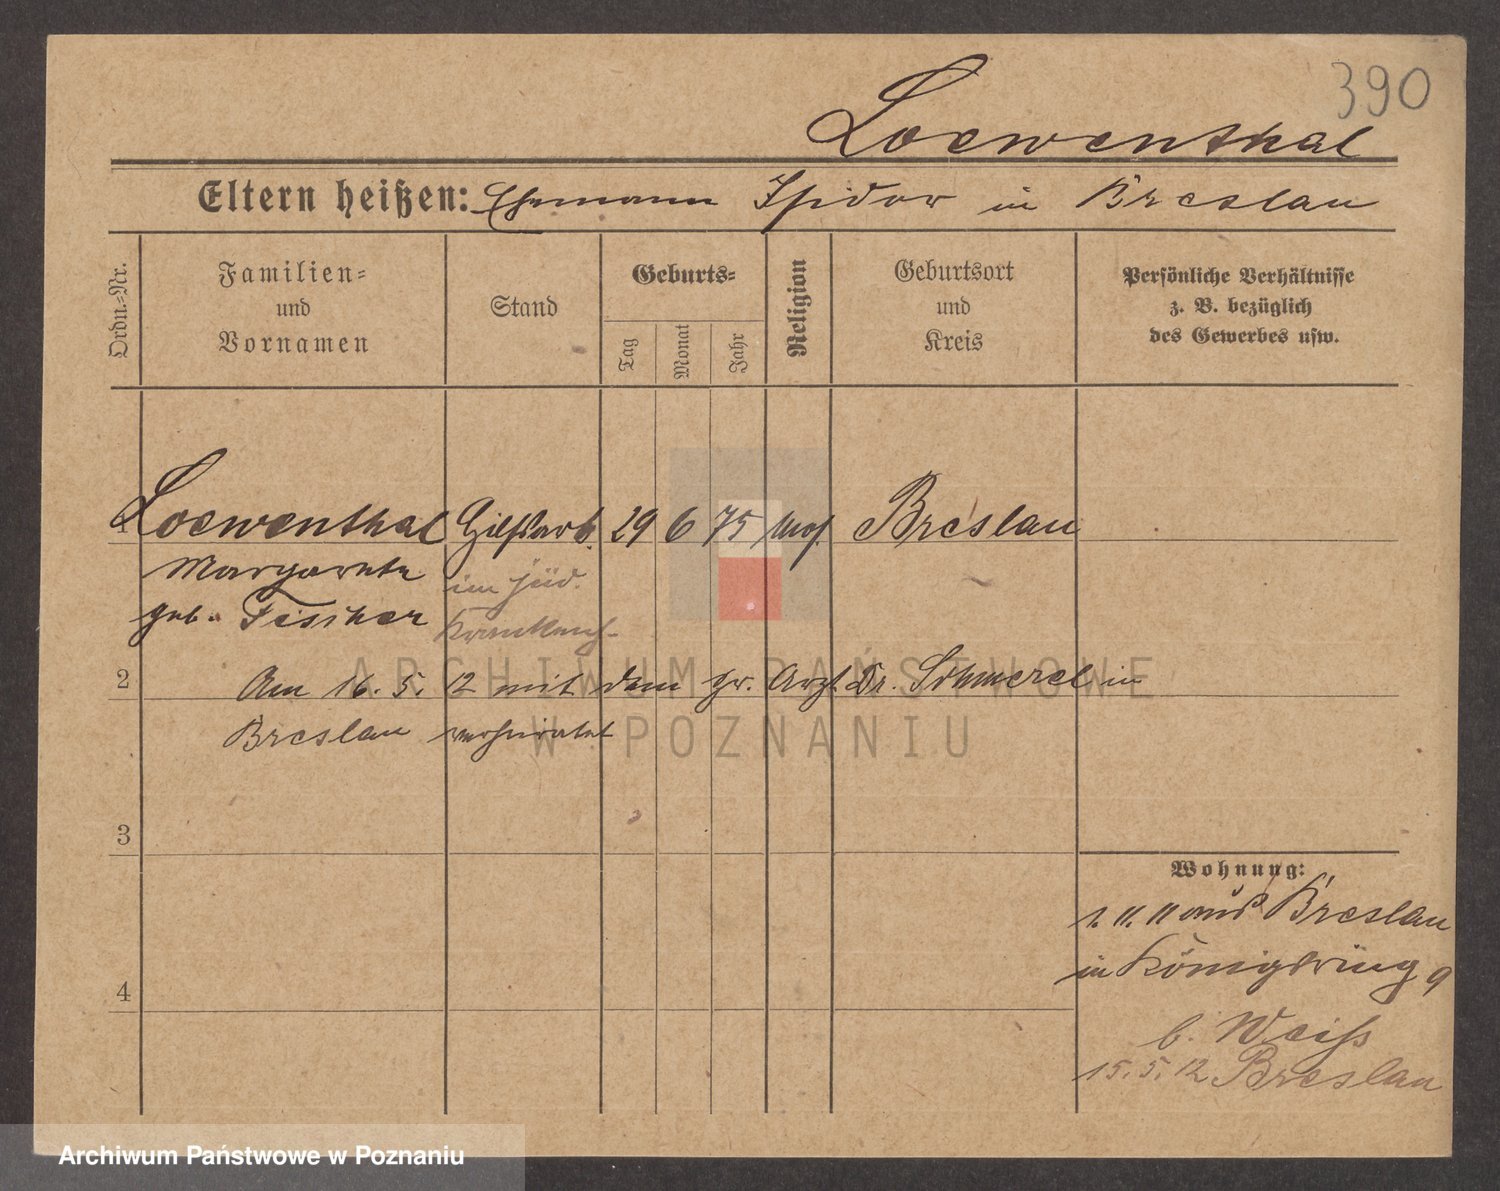 390
Loewenthal
Eltern heißen: Ehemann Isidor in Breslau
Ordn.-Nr.
Familien-
und
Vornamen
Stand
Geburts-
Tag
Monat
Jahr
Religion
Geburtsort
und
Kreis
Persönliche Verhältnisse
z. B. bezüglich
des Gewerbes usw.
1 Loewenthal Hilfsarb. 29 6 75 mos. Breslau
Margarete im jüd.
geb. Fischer Krankenh.
2 Am 16. 5. 12 mit dem pr. Arzt Dr. Schmerel in
Breslau verheiratet
3
4
Wohnung:
1. 11. 11 aus Breslau
in Königsring 9
b. Weiss
15. 5. 12 Breslau
ARCHIWUM PAŃSTWOWE
W POZNANIU
Archiwum Państwowe w Poznaniu